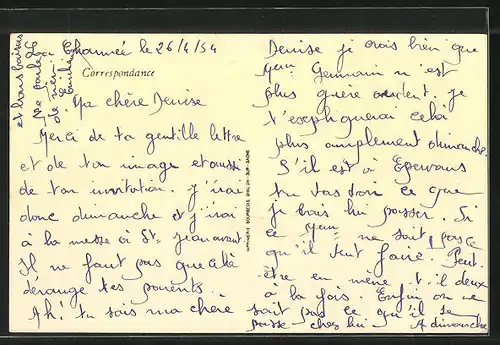 La Charmée le 26/4/54
Correspondance
Ma chère Denise
Merci de ta gentille lettre
et de ton image et aussi
de ton invitation. j'irai
donc dimanche et j'irai
à la messe à St jean avant.
Il ne faut pas que cela
dérange tes parents.
Ah! tu sais ma chère
Denise je crois bien que
Germain n'est
plus guère je
t'expliquerai cela
plus amplement dimanche.
S'il est à
tu ce que
je vais lui passer. Si
ce ne sait pas ce
qu'il veut faire. Peut-
être en même t. il deux
à la fois. Enfin on ne
sait pas ce qu'il se
passe chez lui A dimanche
et bons baisers
ne parle
de moi
IMPRIMERIE BOURGEOIS